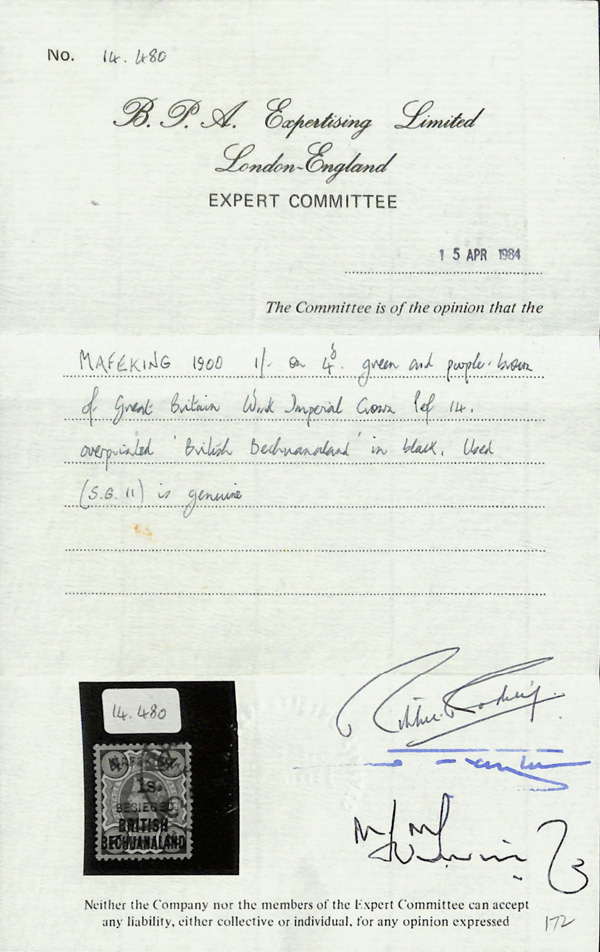 No. 14.480
B. P. A. Expertising Limited
London-England
EXPERT COMMITTEE
15 APR 1984
The Committee is of the opinion that the
MAFEKING 1900 1/- on 4d. green and purple-brown
of Great Britain Wmk Imperial Crown Perf 14.
overprinted 'British Bechuanaland' in black. Used
(S.G. 11) is genuine
14.480
1s.
BESIEGED
BRITISH
BECHUANALAND
Neither the Company nor the members of the Expert Committee can accept
any liability, either collective or individual, for any opinion expressed
172